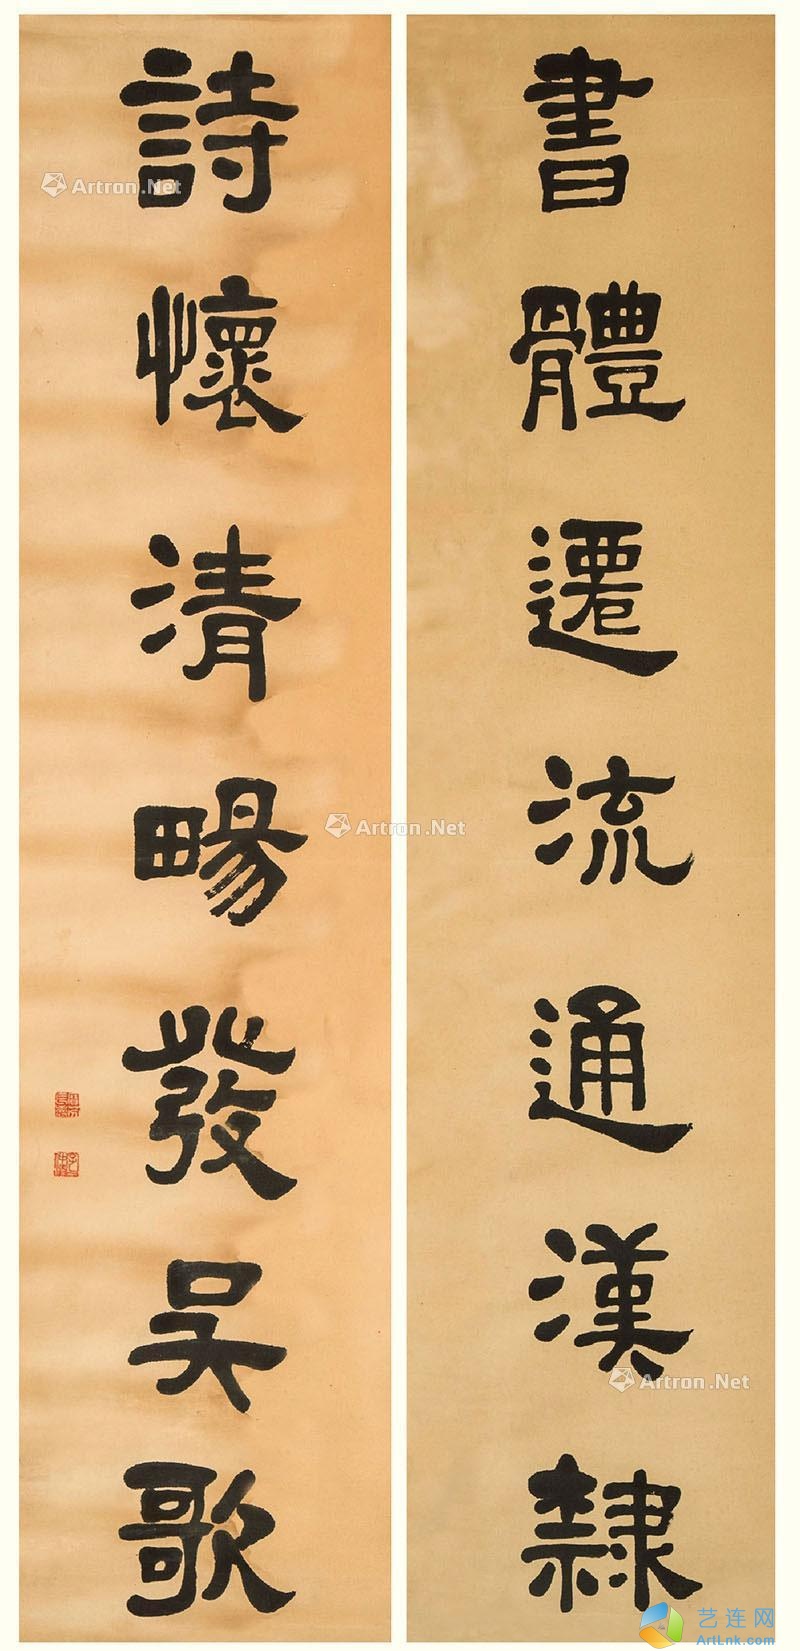 書體遷流通漢隸
詩懷清畼發吴歌
Artron.Net
Artron.Net
Artron.Net
艺连网
ArtLnk.com